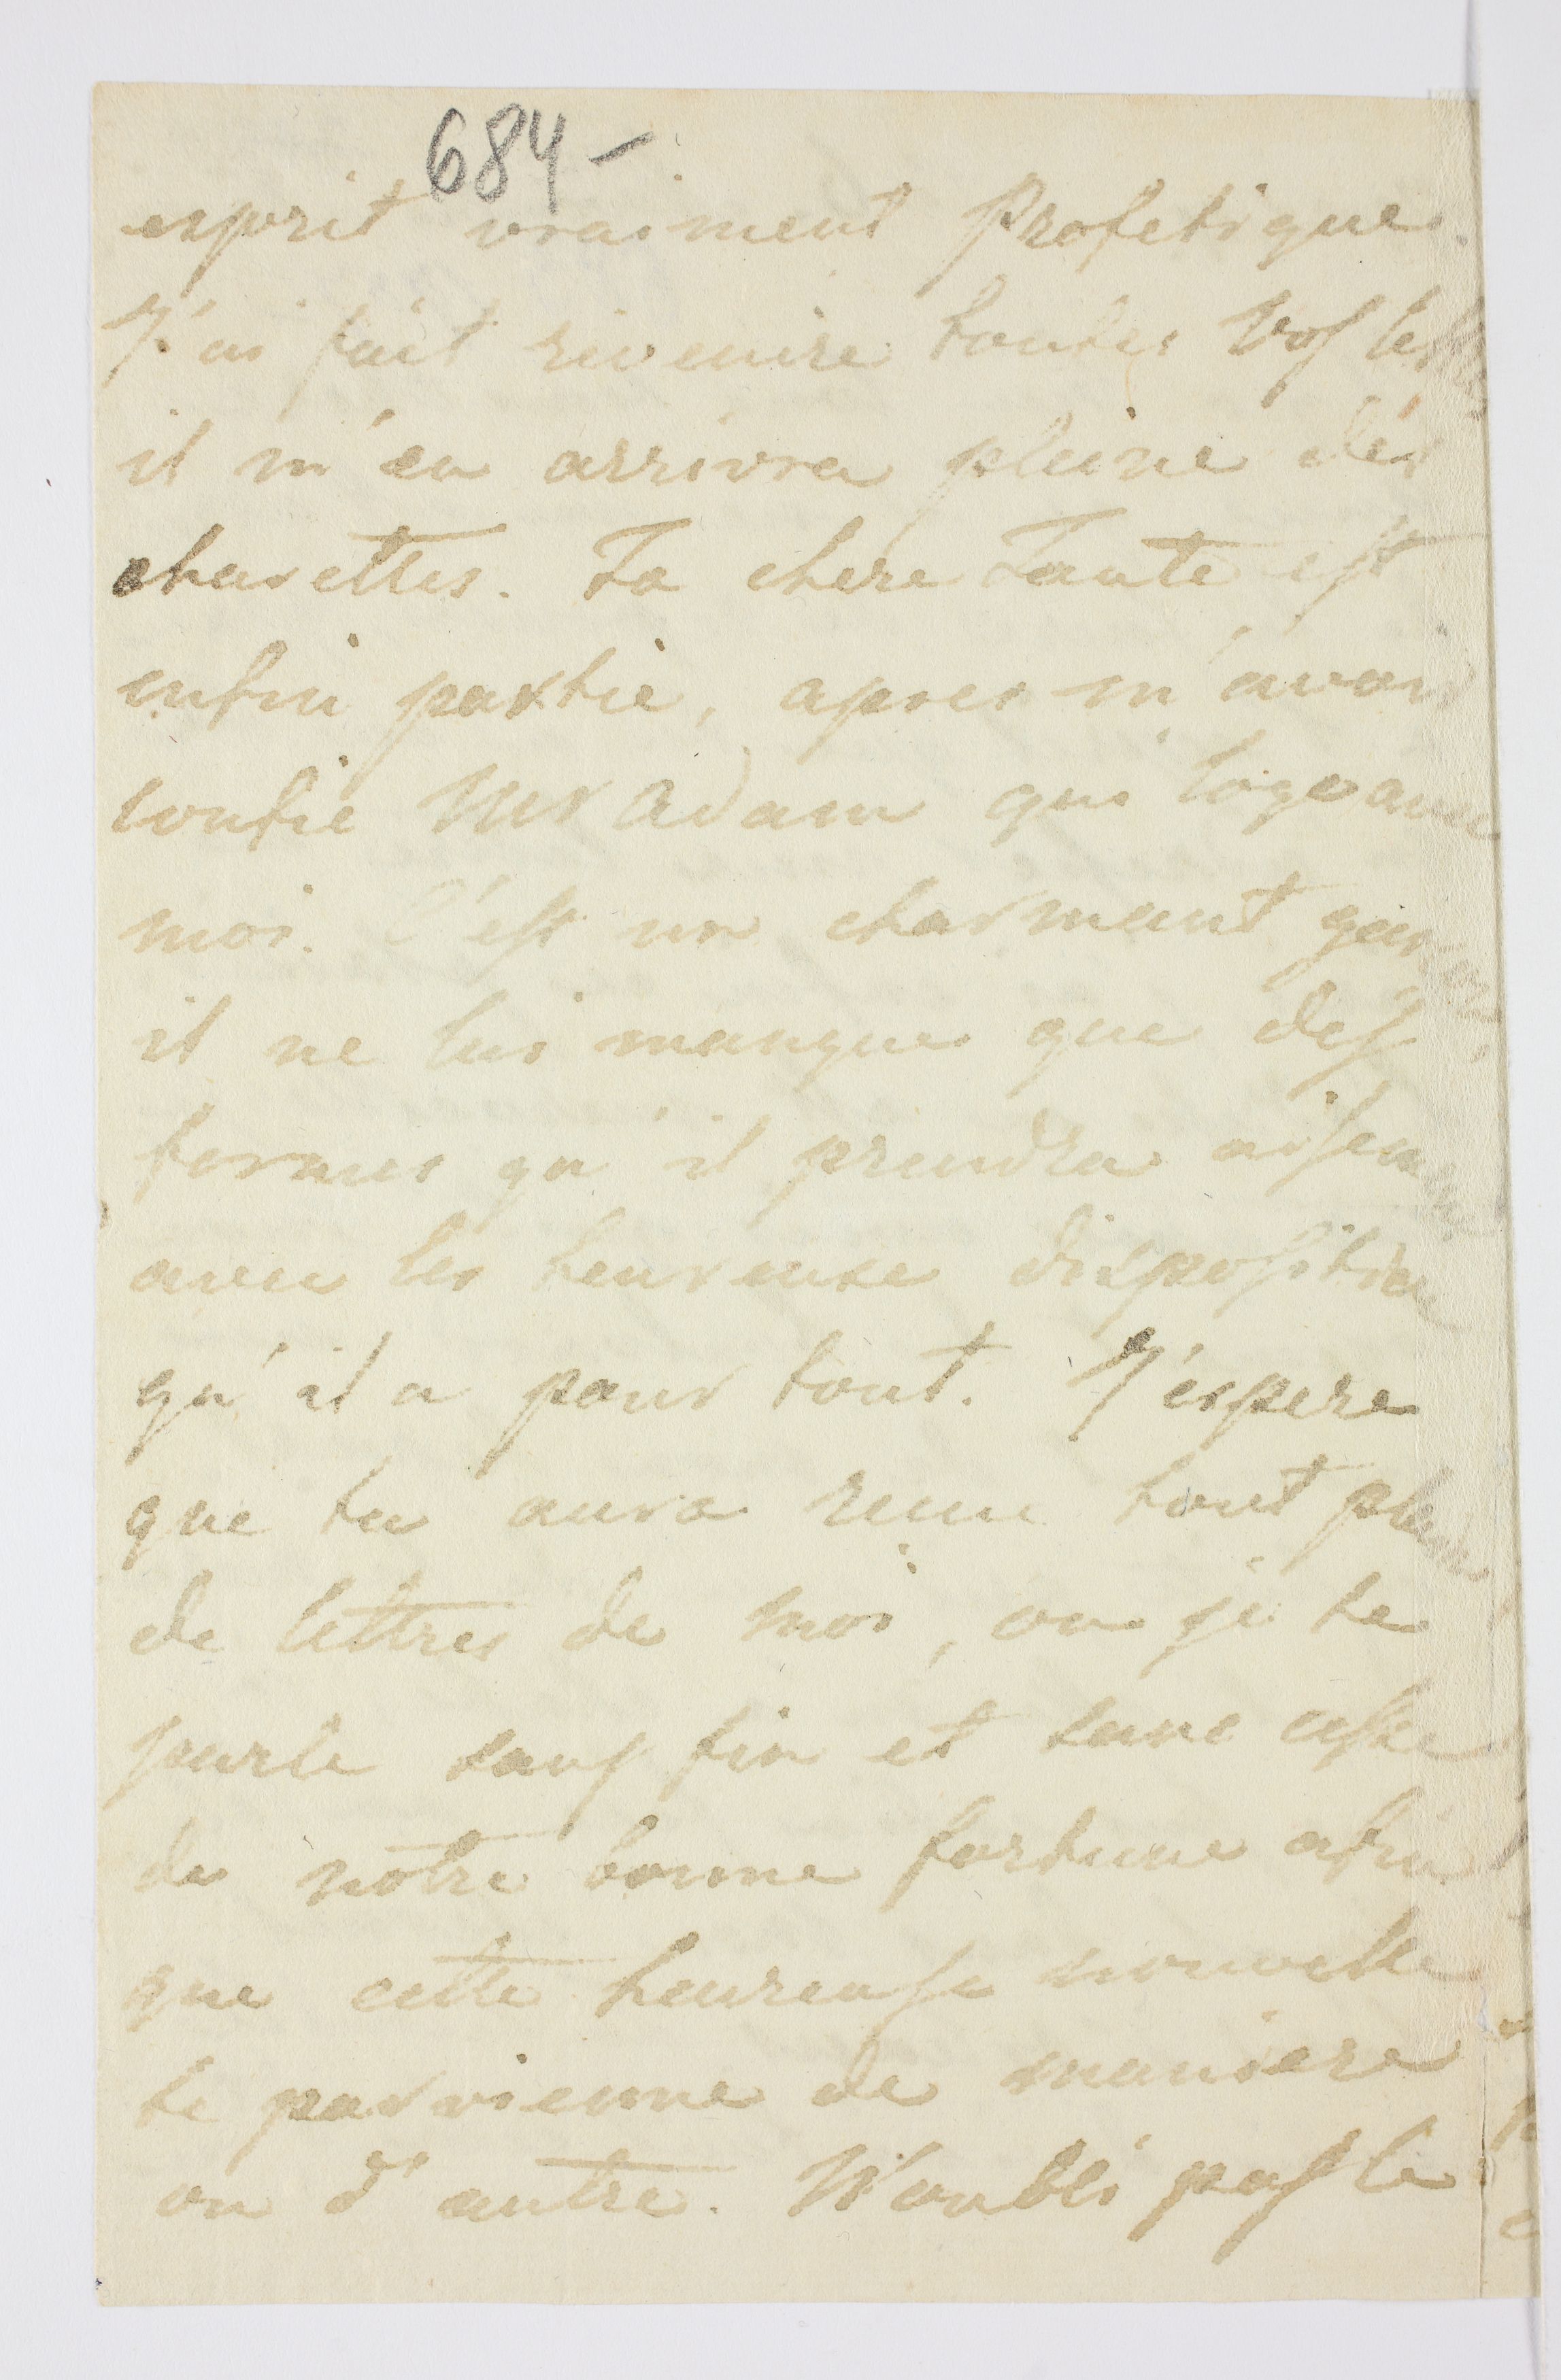 684 –
esprit vraiment Profetique.
J'ai fait rivenire toutes Vos lettres
il m'en arrivra pleine des
charettes. Ta chere Tante est
enfin partie, apres m'avoir
confie Mr Adam qui loge avec
moi. C'est un charmant garçon,
il ne lui manque que des
formes qu'il prendra aisement
avec les heureuse disposition
qu'il a pour tout. J'espere
que tu aura recu tout plein
de lettres de moi, ou je te
parle sans fin et sans cesse
de nôtre bonne fortune afin
que cette heureuse nouvelle
te parvienne de maniere
ou d'autre. N'oubli pas le